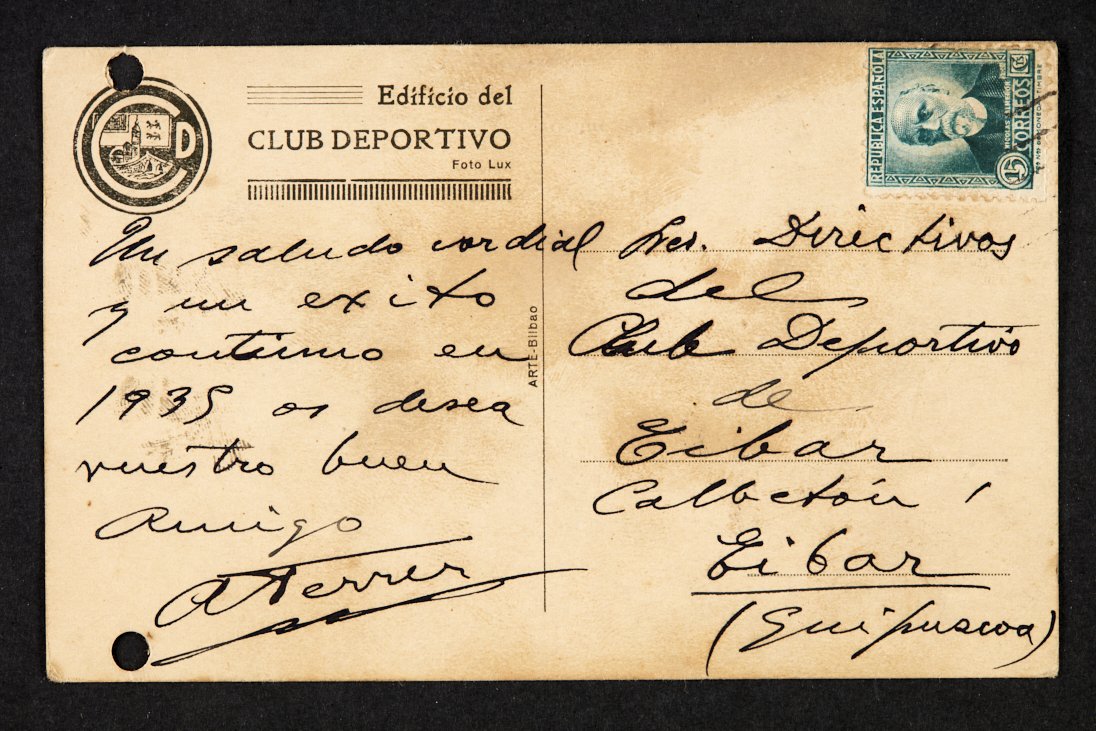 C D
Edificio del
CLUB DEPORTIVO
Foto Lux
Un saludo cordial
y un exito
continuo en
1935 os desea
vuestro buen
Amigo
A Ferrer
ARTE-Bilbao
REPUBLICA ESPAÑOLA
NICOLAS SALMERON
CORREOS
15 CTS
Sres. Directivos
del
Club Deportivo
de
Eibar
Calbetón 1
Eibar
(Guipuscoa)